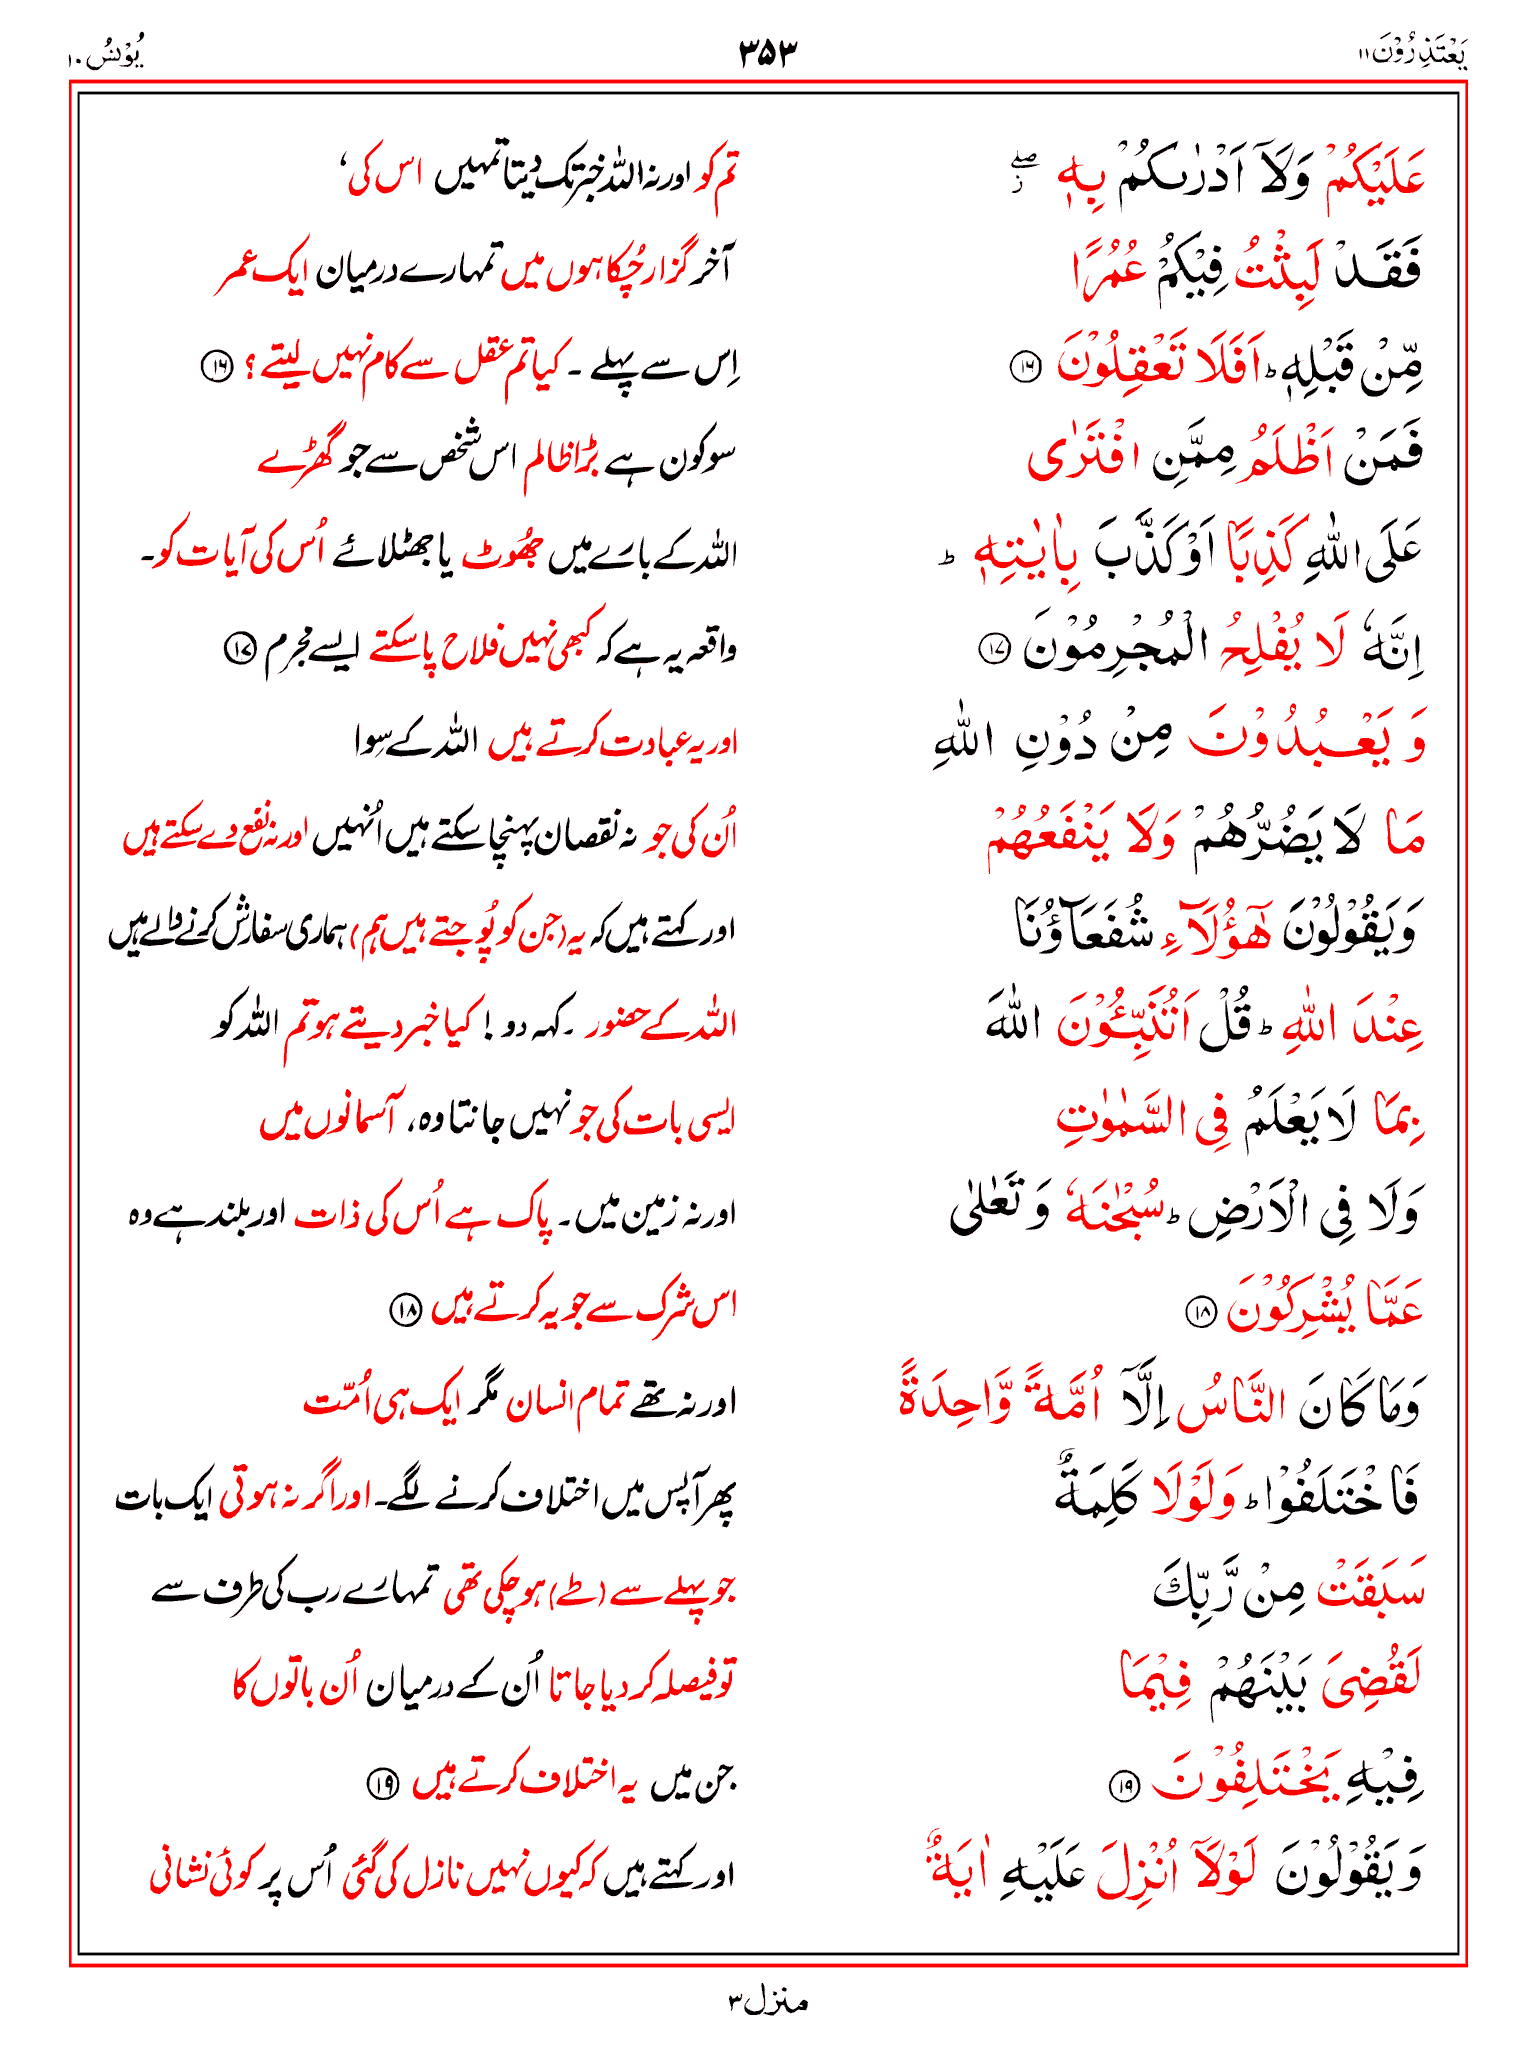 یَعْتَذِرُوْنَ ۱۱ ۳۵۳ یُوْنُسُ ۱۰
عَلَیْكُمْ وَلَاۤ اَدْرٰىكُمْ بِهٖ ۖؗ تم کو اور نہ اللہ خبر تک دیتا تمہیں اس کی،
فَقَدْ لَبِثْتُ فِیْكُمْ عُمُرًا آخر گزار چُکا ہوں میں تمہارے درمیان ایک عمر
مِّنْ قَبْلِهٖ ؕ اَفَلَا تَعْقِلُوْنَ ﴿۱۶﴾ اِس سے پہلے ۔ کیا تم عقل سے کام نہیں لیتے ؟ ﴿۱۶﴾
فَمَنْ اَظْلَمُ مِمَّنِ افْتَرٰى سو کون ہے بڑا ظالم اس شخص سے جو گھڑے
عَلَى اللّٰهِ كَذِبًا اَوْ كَذَّبَ بِاٰیٰتِهٖ ؕ اللہ کے بارے میں جھُوٹ یا جھٹلائے اُس کی آیات کو۔
اِنَّهٗ لَا یُفْلِحُ الْمُجْرِمُوْنَ ﴿۱۷﴾ واقعہ یہ ہے کہ کبھی نہیں فلاح پا سکتے ایسے مجرم ﴿۱۷﴾
وَ یَعْبُدُوْنَ مِنْ دُوْنِ اللّٰهِ اور یہ عبادت کرتے ہیں اللہ کے سِوا
مَا لَا یَضُرُّهُمْ وَلَا یَنْفَعُهُمْ اُن کی جو نہ نقصان پہنچا سکتے ہیں اُنہیں اور نہ نفع دے سکتے ہیں
وَیَقُوْلُوْنَ هٰۤؤُلَآءِ شُفَعَآؤُنَا اور کہتے ہیں کہ یہ (جن کو پُوجتے ہیں ہم) ہماری سفارش کرنے والے ہیں
عِنْدَ اللّٰهِ ؕ قُلْ اَتُنَبِّـُٔوْنَ اللّٰهَ اللہ کے حضور ۔ کہہ دو ! کیا خبر دیتے ہو تم اللہ کو
بِمَا لَا یَعْلَمُ فِی السَّمٰوٰتِ ایسی بات کی جو نہیں جانتا وہ، آسمانوں میں
وَلَا فِی الْاَرْضِ ؕ سُبْحٰنَهٗ وَ تَعٰلٰى اور نہ زمین میں۔ پاک ہے اُس کی ذات اور بلند ہے وہ
عَمَّا یُشْرِكُوْنَ ﴿۱۸﴾ اس شرک سے جو یہ کرتے ہیں ﴿۱۸﴾
وَمَا كَانَ النَّاسُ اِلَّاۤ اُمَّةً وَّاحِدَةً اور نہ تھے تمام انسان مگر ایک ہی اُمّت
فَاخْتَلَفُوْا ؕ وَلَوْلَا كَلِمَةٌ پھر آپس میں اختلاف کرنے لگے۔ اور اگر نہ ہوتی ایک بات
سَبَقَتْ مِنْ رَّبِّكَ جو پہلے سے (طے) ہو چکی تھی تمہارے رب کی طرف سے
لَقُضِیَ بَیْنَهُمْ فِیْمَا تو فیصلہ کر دیا جاتا اُن کے درمیان اُن باتوں کا
فِیْهِ یَخْتَلِفُوْنَ ﴿۱۹﴾ جن میں یہ اختلاف کرتے ہیں ﴿۱۹﴾
وَ یَقُوْلُوْنَ لَوْلَاۤ اُنْزِلَ عَلَیْهِ اٰیَةٌ اور کہتے ہیں کہ کیوں نہیں نازل کی گئی اُس پر کوئی نشانی
منزل ۳